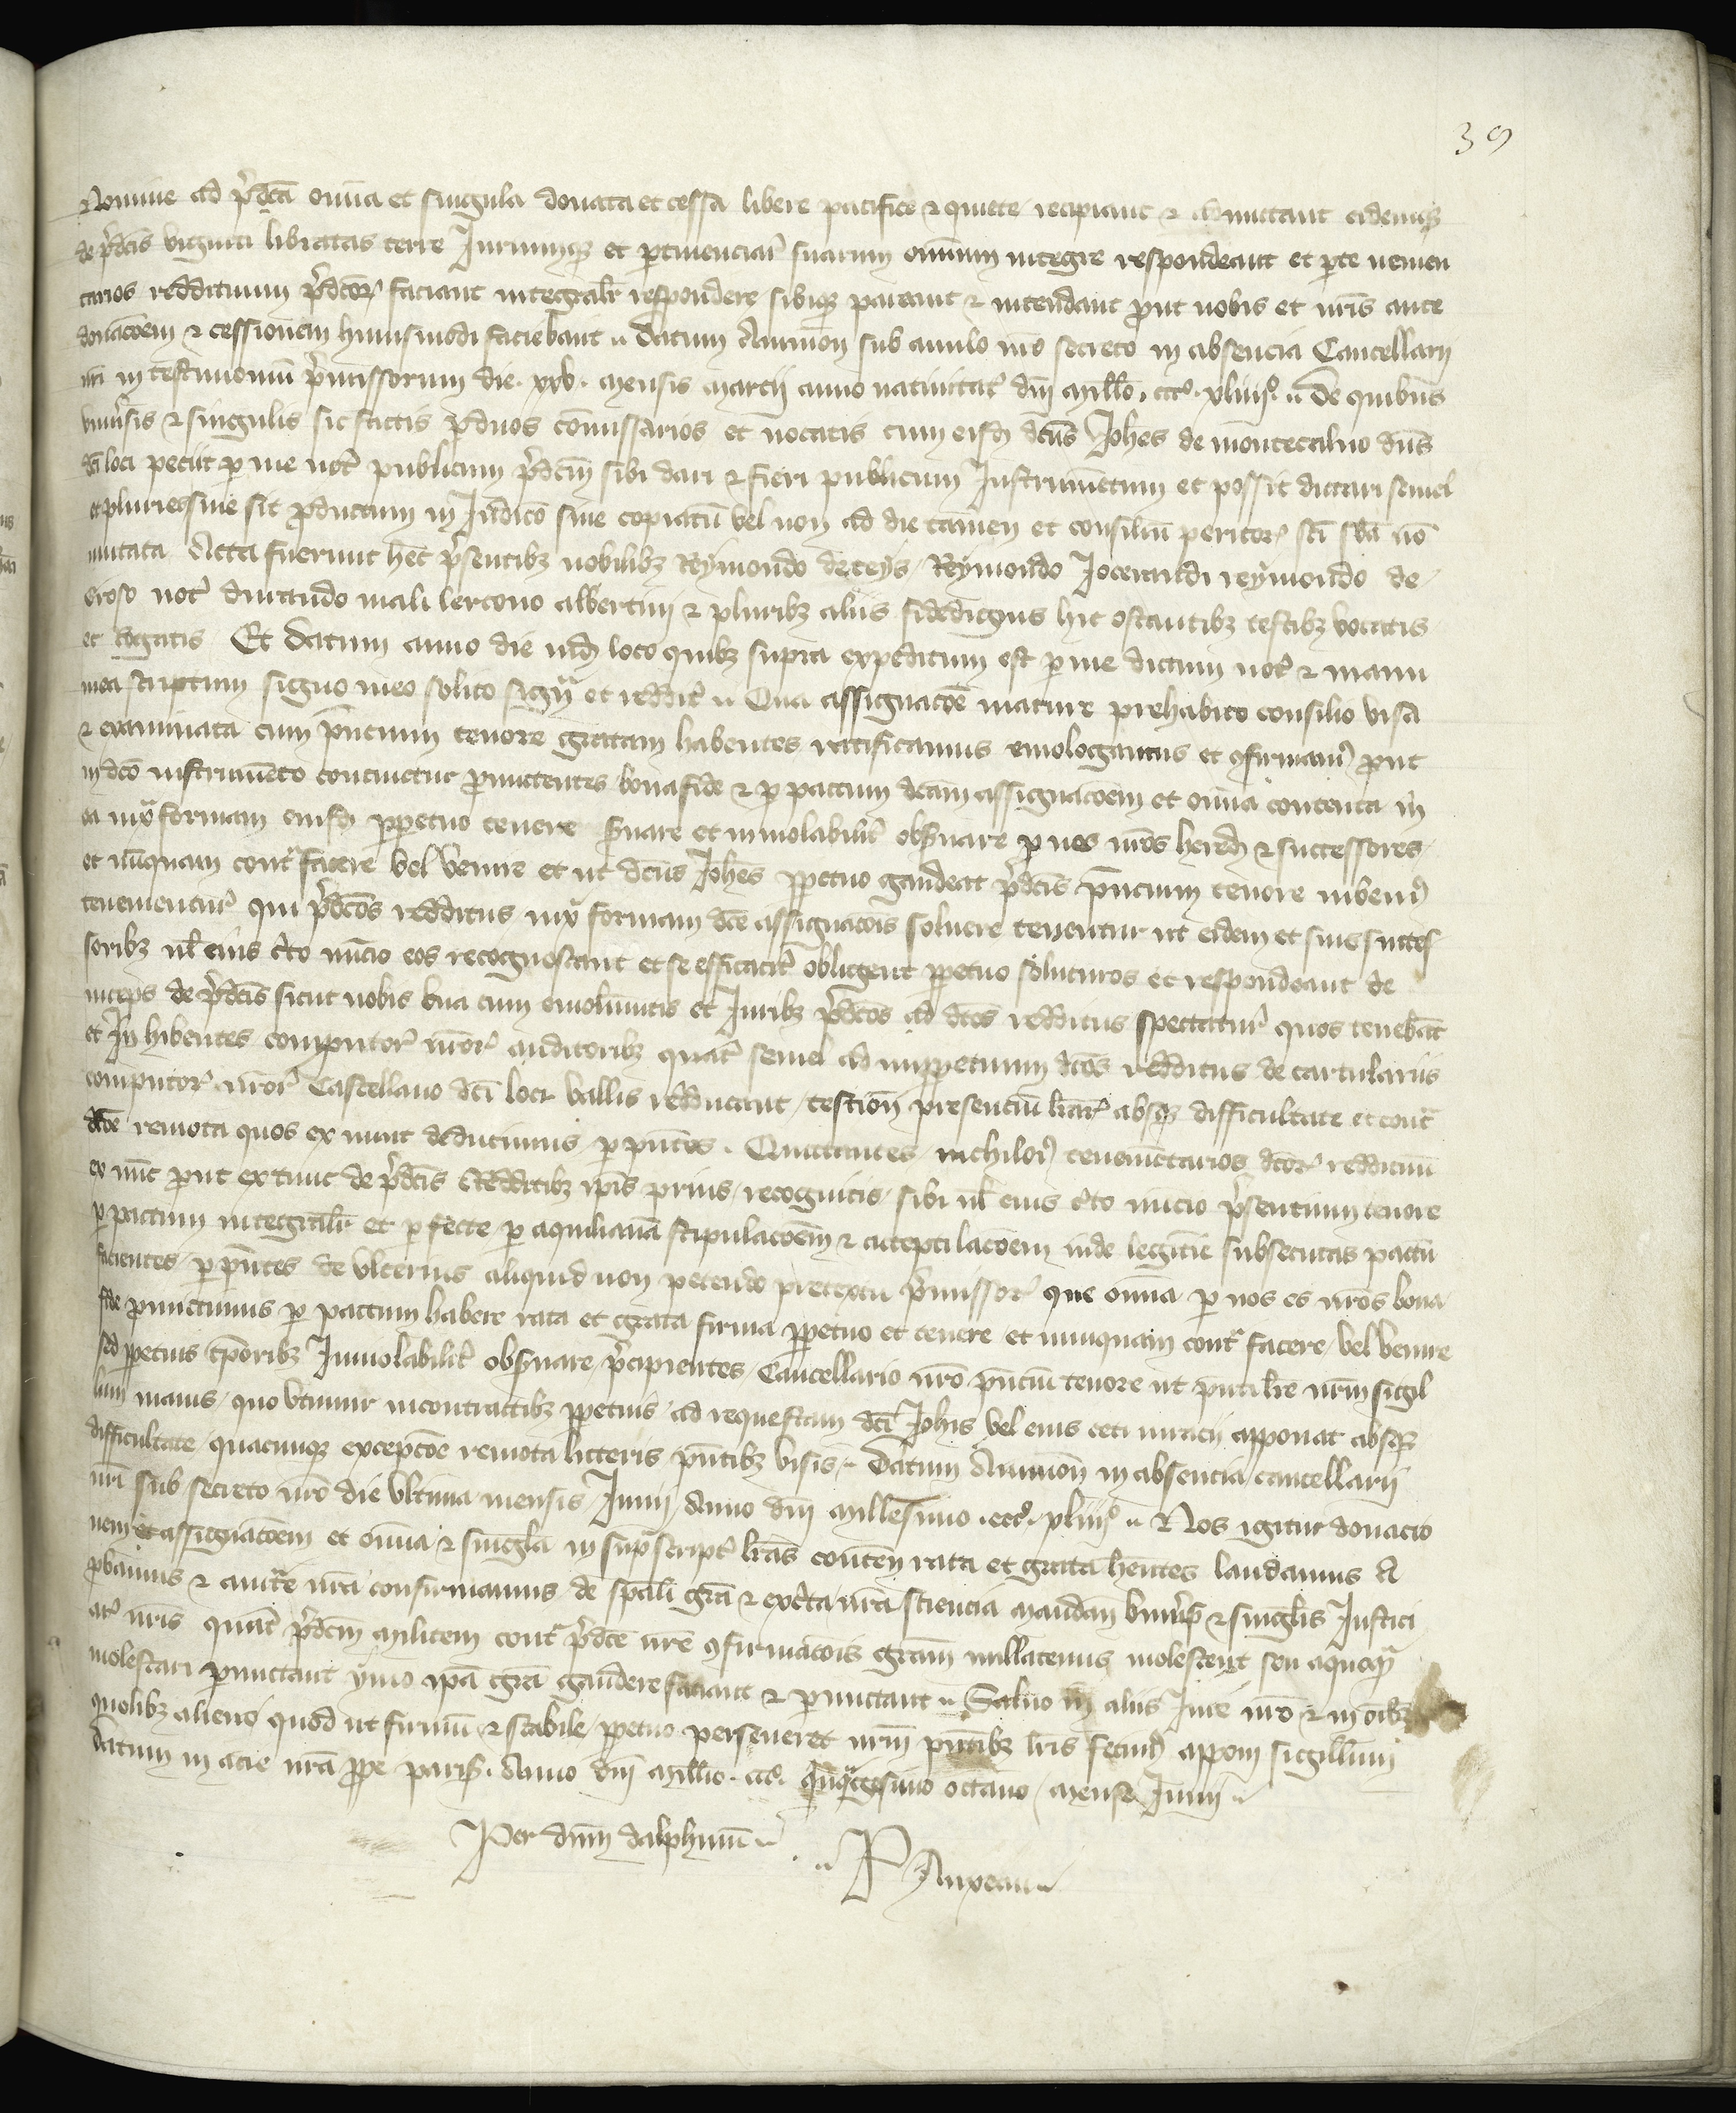 39
Nomine ad p̃dc̃a om̃ia et singula donata et cessa libere pacifice ⁊ quiete recipiant ⁊ admittant eidemq3
de p̃dc̃is viginti libratas terre Juriumq3 et ꝑtinenciar̃ suarum omnium integre respondeant et ꝑ tenemen
tarios reddituum p̃dc̃or̃ faciant integralr̃ respondere sibiq3 pareant ⁊ intendant prout nobis et nr̃is ante
donac̃oem ⁊ cessionem huiusmodi faciebant .. Datum Auinion̄ sub anulo nr̃o secreto in absencia Cancellarij
nr̃i in testimoniũ p̃missorum die . xxv . mensis marcij anno natiuitat̃ dñi mill̃o . ccc̊ . xliiij̊ .. De quibus
vniũsis ⁊ singulis sic factis p̃ duos com̃issarios et vocatis cum eisd̃ dc̃us Joh̃es de montecaluo dñs
dc̃i loci peciit ꝑ me not̃ publicum p̃dc̃m sibi dari ⁊ fieri publicum Instrumentum et possit dictari semel
et pluries siue sit ꝓductum in Judic̃o siue copiatũ vel non ad dictamen et consiliũ peritor̃ fc̃i sb̃a nõ
mutata Acta fuerunt hec p̃sentib3 nobilib3 Reymondo de teys Reymondo Jocerandi reymondo de
eroso not̃ durando mali lercono albertini ⁊ plurib3 aliis fidedignis hic astantib3 testib3 vocatis
et rogatis Et datum anno die ind̃ loco quib3 supra expeditum est ꝑ me dictum not̃ ⁊ manu
mea scriptum signo meo solito sign̄ et reddit̃ .. Qua assignac̃oe mature prehabito consilio visa
⁊ examinata cum p̃ncium tenore gratam habentes ratificamus emologamus et ꝯfirmam̃ prout
in dc̃o instrumento continetur promittentes bonafide ⁊ ꝑ pactum dc̃am assignac̃oem et om̃ia contenta in
ea iux̃ formam eiusd̃ ꝑpetuo tenere ẜuare et inuiolabilit̃ obẜuare ꝑ nos nr̃os hered̃ ⁊ successores
et nũquam cont̃ facere vel venire et ut dc̃us Joh̃es ꝑpetuo gaudeat p̃dc̃is p̃ncium tenore iubem̃
tenementar̃ qui p̃dc̃os redditus iux̃ formam dc̃e assignac̃ois soluere tenentur ut eidem et suis succes
sorib3 ul̃ eius c̃to nũcio eos recognoscant et se efficacit̃ obligent ꝑpetuo soluturos et respondeant de
inceps de p̃dc̃is sicut nobis vna cum emolumentis et Jurib3 p̃dc̃os ad dc̃os redditus spectatur̃ quos teneb̃at
et Inhibentes computor̃ nr̃or̃ auditorib3 quat̃ semel ad imꝑpetuum dc̃os redditus de cartulariis
computor̃ nr̃or̃ Castellano dc̃i loci vallis reducant testion̄ presentiũ lr̃ar̃ absq3 difficultate et cont̃
dc̃oe remota quos ex nunc deducimus ꝑ p̃ntes . Quittantes nichilom̃ tenem̃tarios dc̃or̃ reddituũ
ex nũc prout ex tunc de p̃dc̃is Redditib3 ip̃is prius recognitis sibi ul̃ eius c̃to nũcio p̃sentium tenore
ꝑ pactum integralr̃ et ꝑfecte ꝑ aquilianã stipulac̃oem ⁊ acceptilac̃oem inde legitime subsecutas pactũ
facientes ꝑ p̃ntes de vlterius aliquid non petendo pretextu p̃missor̃ que om̃ia ꝑ nos et nr̃os bona
fide promittimus ꝑ pactum habere rata et grata firma ꝑpetuo et tenere et nunquam cont̃ facere vel venire
sed ꝑpetuis tp̃orib3 Inuiolabilit̃ obẜuare p̃cipientes Cancellario nr̃o p̃nciũ tenore ut p̃ntib lr̃e nr̃m sigil
lum maius quo vtimur in contractib3 ꝑpetuis ad requestam dc̃i Joh̃is vel eius certi nuncii apponat absq3
difficultate quacumq3 excepc̃oe remota litteris p̃ntib3 visis .. Datum Auinion̄ in absencia cancellarii
nr̃i sub secreto nr̃o die vltima mensis Junij Anno dñi millesimo . ccc̊ . xliiij̊ .. Nos igitur donacio
nem et assignac̃oem et om̃ia ⁊ singl̃a in sup̃script̃ lr̃as conten̄ rata et grata h̃entes laudamus A
ꝓbamus ⁊ auct̃te nr̃a confirmamus de sp̃ali gr̃a ⁊ exc̃ta nr̃a sciencia mandam̃ vniũs̃ ⁊ singl̃is Justici
ar̃ nr̃is quat̃ p̃dc̃m militem cont̃ p̃dc̃e nr̃e ꝯfirmac̃ois gr̃am nullatenus molestent seu a quoq̃
molestari ꝑmittant ymo ip̃a gr̃a gaudere faciant ⁊ ꝑmittant .. Saluo in aliis Jure nr̃o ⁊ in om̃ib3
quolib3 alieno quod ut firmũ ⁊ stabile ꝑpetuo perseueret nr̃m p̃ntib3 lr̃is fecim̃ apponi sigillum
Datum in acie nr̃a ꝓpe paris̃ . Anno dñi mill̃io . ccc̊ . Quiq̃gesimo octauo mense Junij ..
Per dñm dalphinũ ..
.. P Auxeau ..